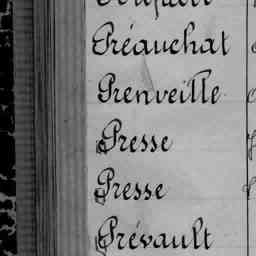 Préauchat
Prenveille
Presse
Presse
Prévault